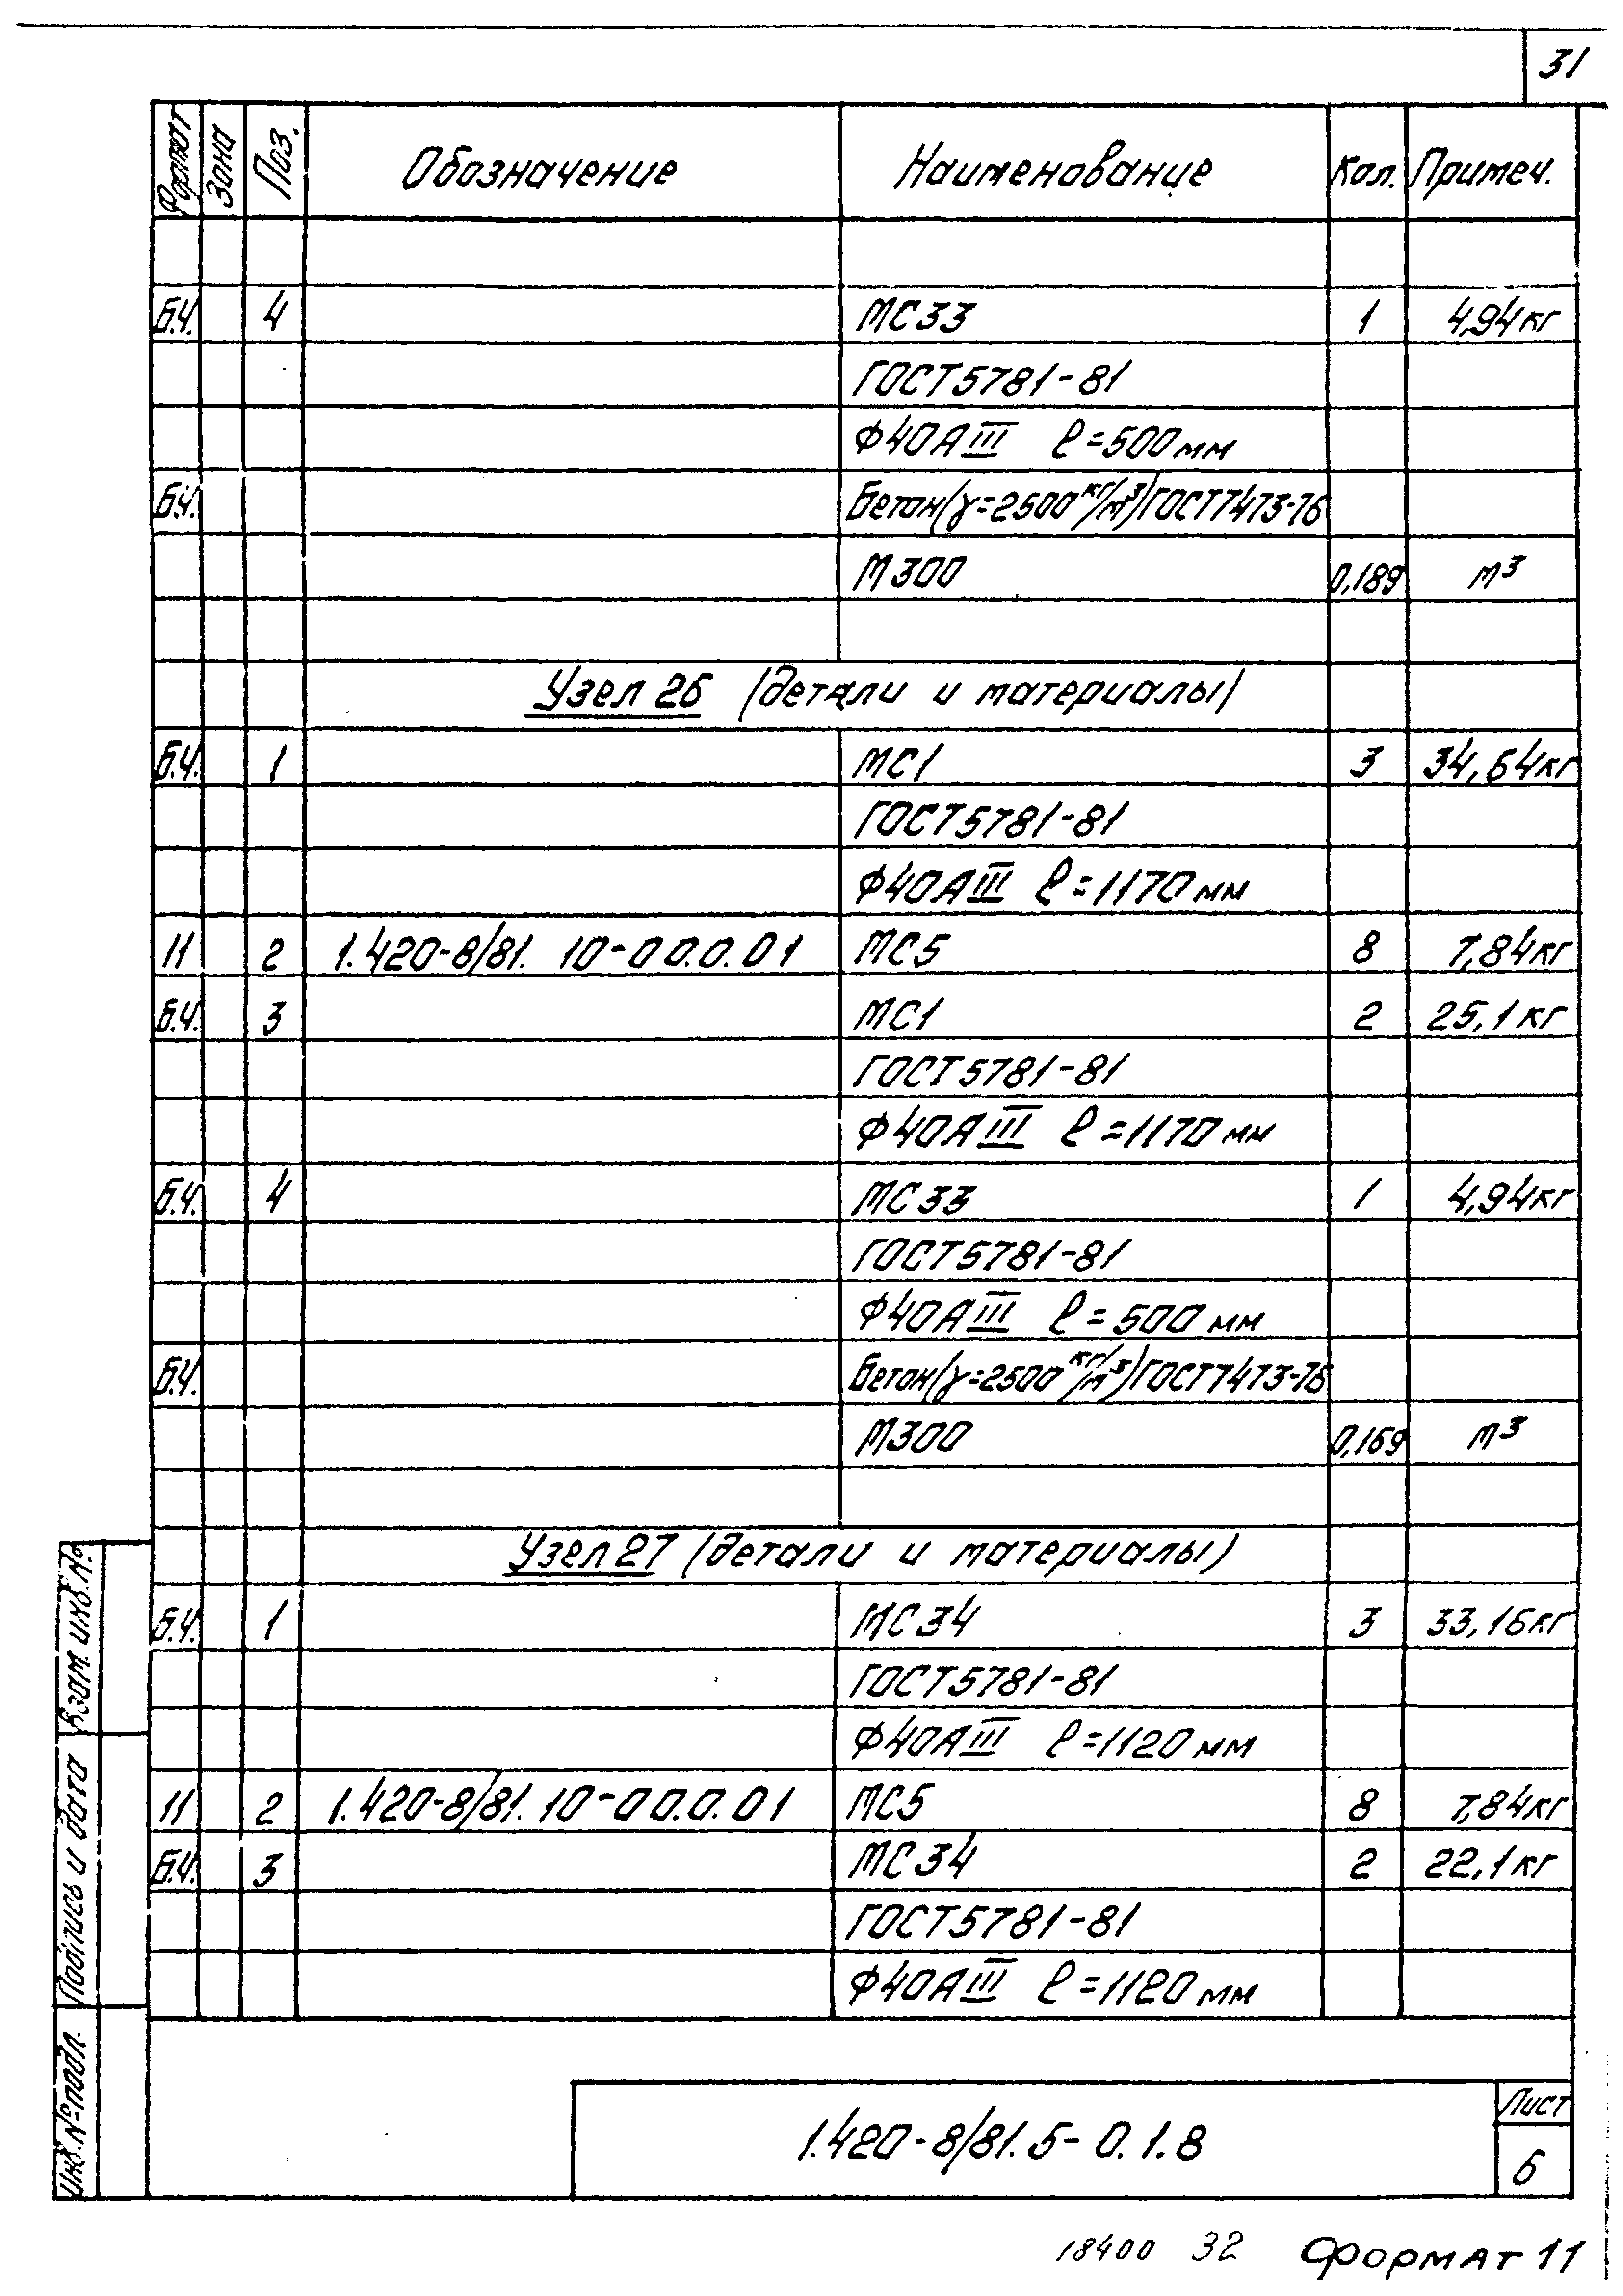 31
Формат Зона Поз. Обозначение Наименование Кол. Примеч.
Б.Ч. 4 МС33 1 4,94кг
ГОСТ5781-81
Ф40АIII ℓ=500мм
Б.Ч. Бетон(γ=2500кг/м³)ГОСТ7473-76
М300 0,189 м³
Узел 26 (детали и материалы)
Б.Ч. 1 МС1 3 34,64кг
ГОСТ5781-81
Ф40АIII ℓ=1170мм
11 2 1.420-8/81. 10-00.0.01 МС5 8 7,84кг
Б.Ч. 3 МС1 2 25,1кг
ГОСТ5781-81
Ф40АIII ℓ=1170мм
Б.Ч. 4 МС33 1 4,94кг
ГОСТ5781-81
Ф40АIII ℓ=500мм
Б.Ч. Бетон(γ=2500кг/м³)ГОСТ7473-76
М300 0,169 м³
Узел 27 (детали и материалы)
Б.Ч. 1 МС34 3 33,16кг
ГОСТ5781-81
Ф40АIII ℓ=1120мм
11 2 1.420-8/81. 10-00.0.01 МС5 8 7,84кг
Б.Ч. 3 МС34 2 22,1кг
ГОСТ5781-81
Ф40АIII ℓ=1120мм
Взам. инв.№
Подпись и дата
Инв.№подл.
1.420-8/81.5-0.1.8
Лист
6
18400 32 Формат 11